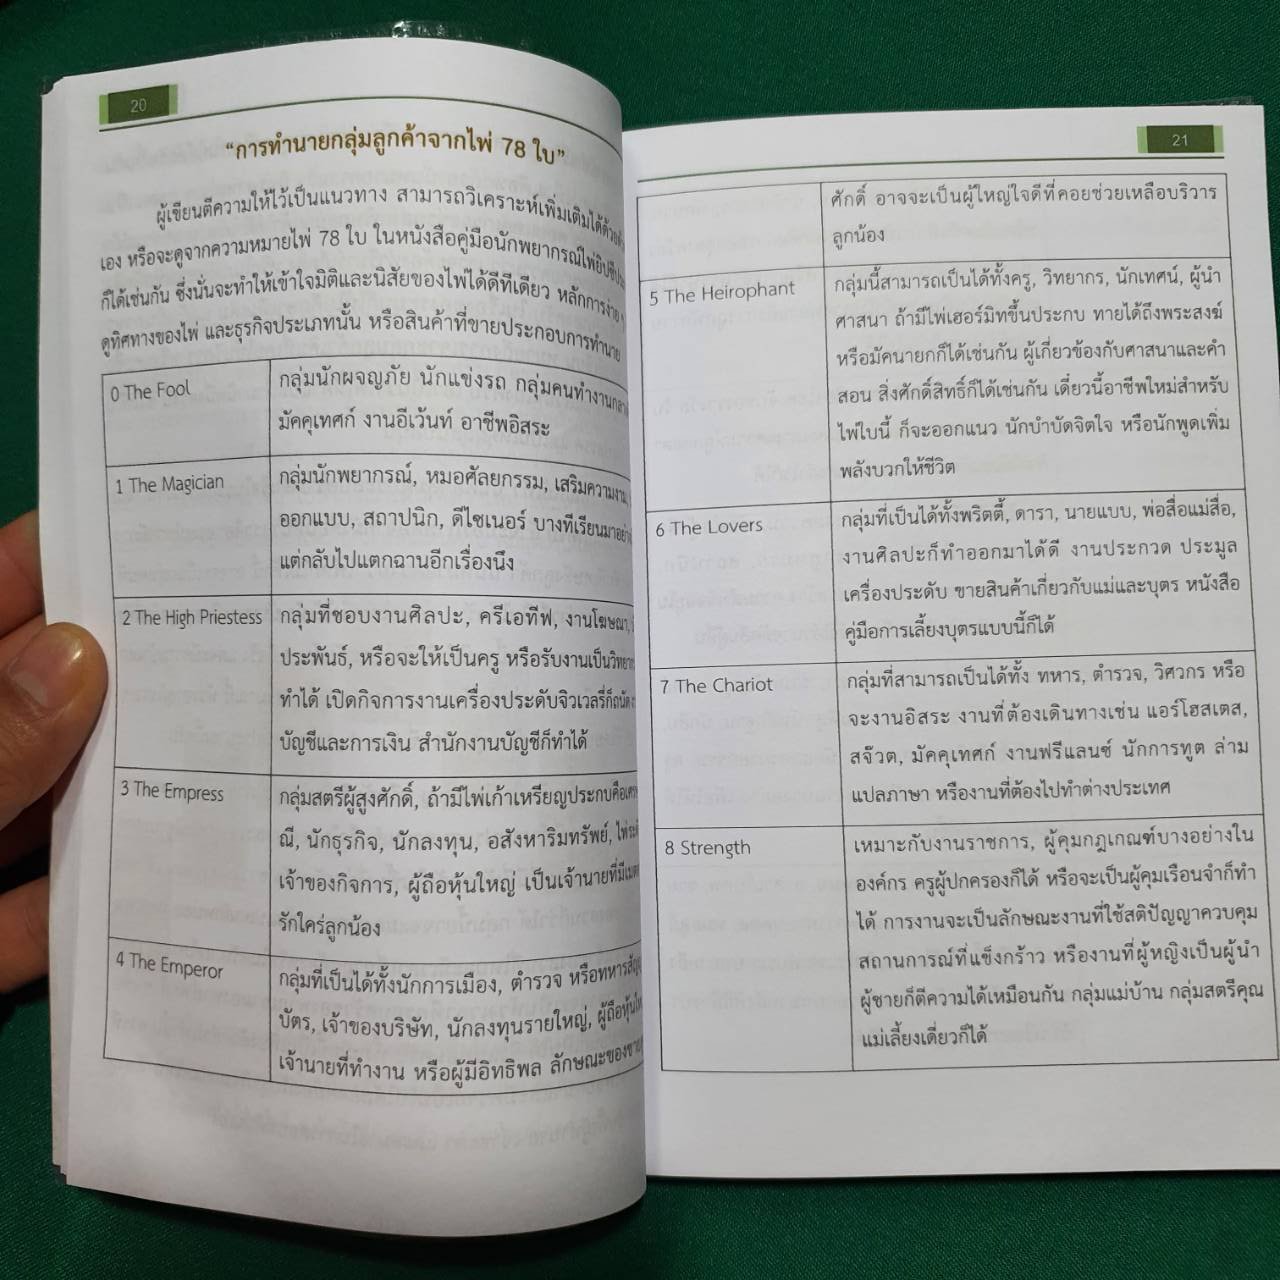 20
“การทำนายกลุ่มลูกค้าจากไพ่ 78 ใบ”
ผู้เขียนตีความให้ไว้เป็นแนวทาง สามารถวิเคราะห์เพิ่มเติมได้ด้วย
เอง หรือจะดูจากความหมายไพ่ 78 ใบ ในหนังสือคู่มือนักพยากรณ์ไพ่ยิปซี
ก็ได้เช่นกัน ซึ่งนั่นจะทำให้เข้าใจมิติและนิสัยของไพ่ได้ดีทีเดียว หลักการง่าย
ดูทิศทางของไพ่ และธุรกิจประเภทนั้น หรือสินค้าที่ขายประกอบการทำนาย
0 The Fool
กลุ่มนักผจญภัย นักแข่งรถ กลุ่มคนทำงาน
มัคคุเทศก์ งานอีเว้นท์ อาชีพอิสระ
1 The Magician
กลุ่มนักพยากรณ์, หมอศัลยกรรม, เสริมความงาม,
ออกแบบ, สถาปนิก, ดีไซเนอร์ บางทีเรียนมา
แต่กลับไปแตกฉานอีกเรื่องนึง
2 The High Priestess
กลุ่มที่ชอบงานศิลปะ, ครีเอทีฟ, งานโฆษณา,
ประพันธ์, หรือจะให้เป็นครู หรือรับงานเป็น
ทำได้ เปิดกิจการงานเครื่องประดับจิวเวลรี่ก็ถนัด
บัญชีและการเงิน สำนักงานบัญชีก็ทำได้
3 The Empress
กลุ่มสตรีผู้สูงศักดิ์, ถ้ามีไพ่เก้าเหรียญประกบคือ
ณี, นักธุรกิจ, นักลงทุน, อสังหาริมทรัพย์,
เจ้าของกิจการ, ผู้ถือหุ้นใหญ่ เป็นเจ้านายที่มี
รักใคร่ลูกน้อง
4 The Emperor
กลุ่มที่เป็นได้ทั้งนักการเมือง, ตำรวจ หรือทหาร
บัตร, เจ้าของบริษัท, นักลงทุนรายใหญ่,
เจ้านายที่ทำงาน หรือผู้มีอิทธิพล ลักษณะของ
21
ศักดิ์ อาจจะเป็นผู้ใหญ่ใจดีที่คอยช่วยเหลือบริวาร
ลูกน้อง
5 The Heirophant
กลุ่มนี้สามารถเป็นได้ทั้งครู, วิทยากร, นักเทศน์, ผู้นำ
ศาสนา ถ้ามีไพ่เฮอร์มิทขึ้นประกบ ทายได้ถึงพระสงฆ์
หรือมัคนายกก็ได้เช่นกัน ผู้เกี่ยวข้องกับศาสนาและคำ
สอน สิ่งศักดิ์สิทธิ์ก็ได้เช่นกัน เดี๋ยวนี้อาชีพใหม่สำหรับ
ไพ่ใบนี้ ก็จะออกแนว นักบำบัดจิตใจ หรือนักพูดเพิ่ม
พลังบวกให้ชีวิต
6 The Lovers
กลุ่มที่เป็นได้ทั้งพริตตี้, ดารา, นายแบบ, พ่อสื่อแม่สื่อ,
งานศิลปะก็ทำออกมาได้ดี งานประกวด ประมูล
เครื่องประดับ ขายสินค้าเกี่ยวกับแม่และบุตร หนังสือ
คู่มือการเลี้ยงบุตรแบบนี้ก็ได้
7 The Chariot
กลุ่มที่สามารถเป็นได้ทั้ง ทหาร, ตำรวจ, วิศวกร หรือ
จะงานอิสระ งานที่ต้องเดินทางเช่น แอร์โฮสเตส,
สจ๊วต, มัคคุเทศก์ งานฟรีแลนซ์ นักการทูต ล่าม
แปลภาษา หรืองานที่ต้องไปทำต่างประเทศ
8 Strength
เหมาะกับงานราชการ, ผู้คุมกฎเกณฑ์บางอย่างใน
องค์กร ครูผู้ปกครองก็ได้ หรือจะเป็นผู้คุมเรือนจำก็ทำ
ได้ การงานจะเป็นลักษณะงานที่ใช้สติปัญญาควบคุม
สถานการณ์ที่แข็งกร้าว หรืองานที่ผู้หญิงเป็นผู้นำ
ผู้ชายก็ตีความได้เหมือนกัน กลุ่มแม่บ้าน กลุ่มสตรีคุณ
แม่เลี้ยงเดี่ยวก็ได้